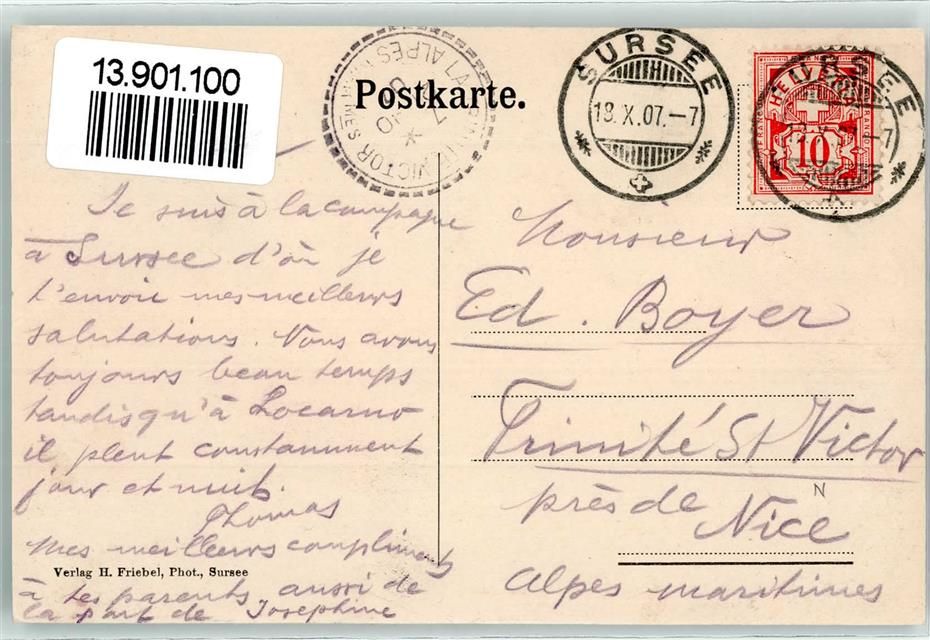 13.901.100
Postkarte.
LA TRINITÉ VICTOR
ALPES MARITIMES
SURSEE
18.X.07.-7
HELVETIA
10
SURSEE
-7
Je suis à la campagne
à Sursee d'où je
t'envoie mes meilleurs
salutations. Vous avons
toujours beau temps
tandisqu'à Locarno
il pleut constamment
jour et nuit.
Thomas
Mes meilleurs compliments
à tes parents aussi de
la part de Josephine
Monsieur
Ed. Boyer
Trinité St Victor
près de
N
Nice
Alpes maritimes
Verlag H. Friebel, Phot., Sursee